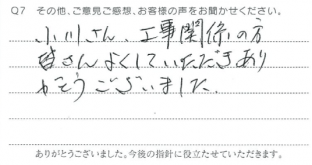 Q7 その他、ご意見ご感想、お客様の声をお聞かせください。
小川さん、工事関係の方
皆さんよくしていただきあり
がとうございました。
ありがとうございました。今後の指針に役立たせていただきます。